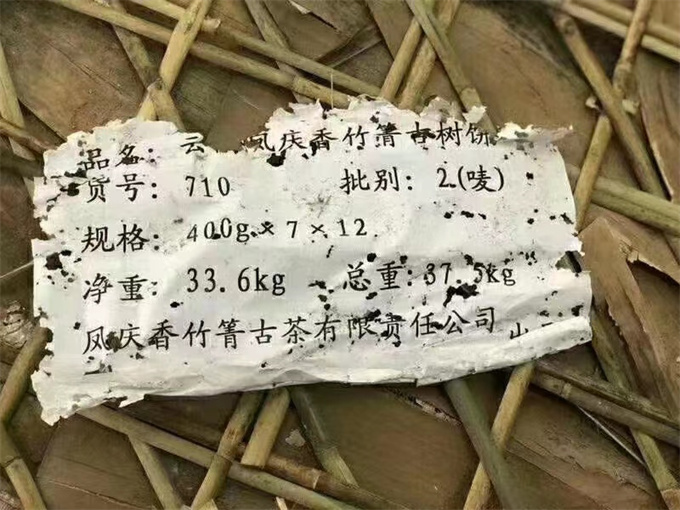 品名: 云 凤庆香竹箐古树饼
货号: 710 批别: 2(唛)
规格: 400g×7×12
净重: 33.6kg 总重: 37.5kg
凤庆香竹箐古茶有限责任公司 出